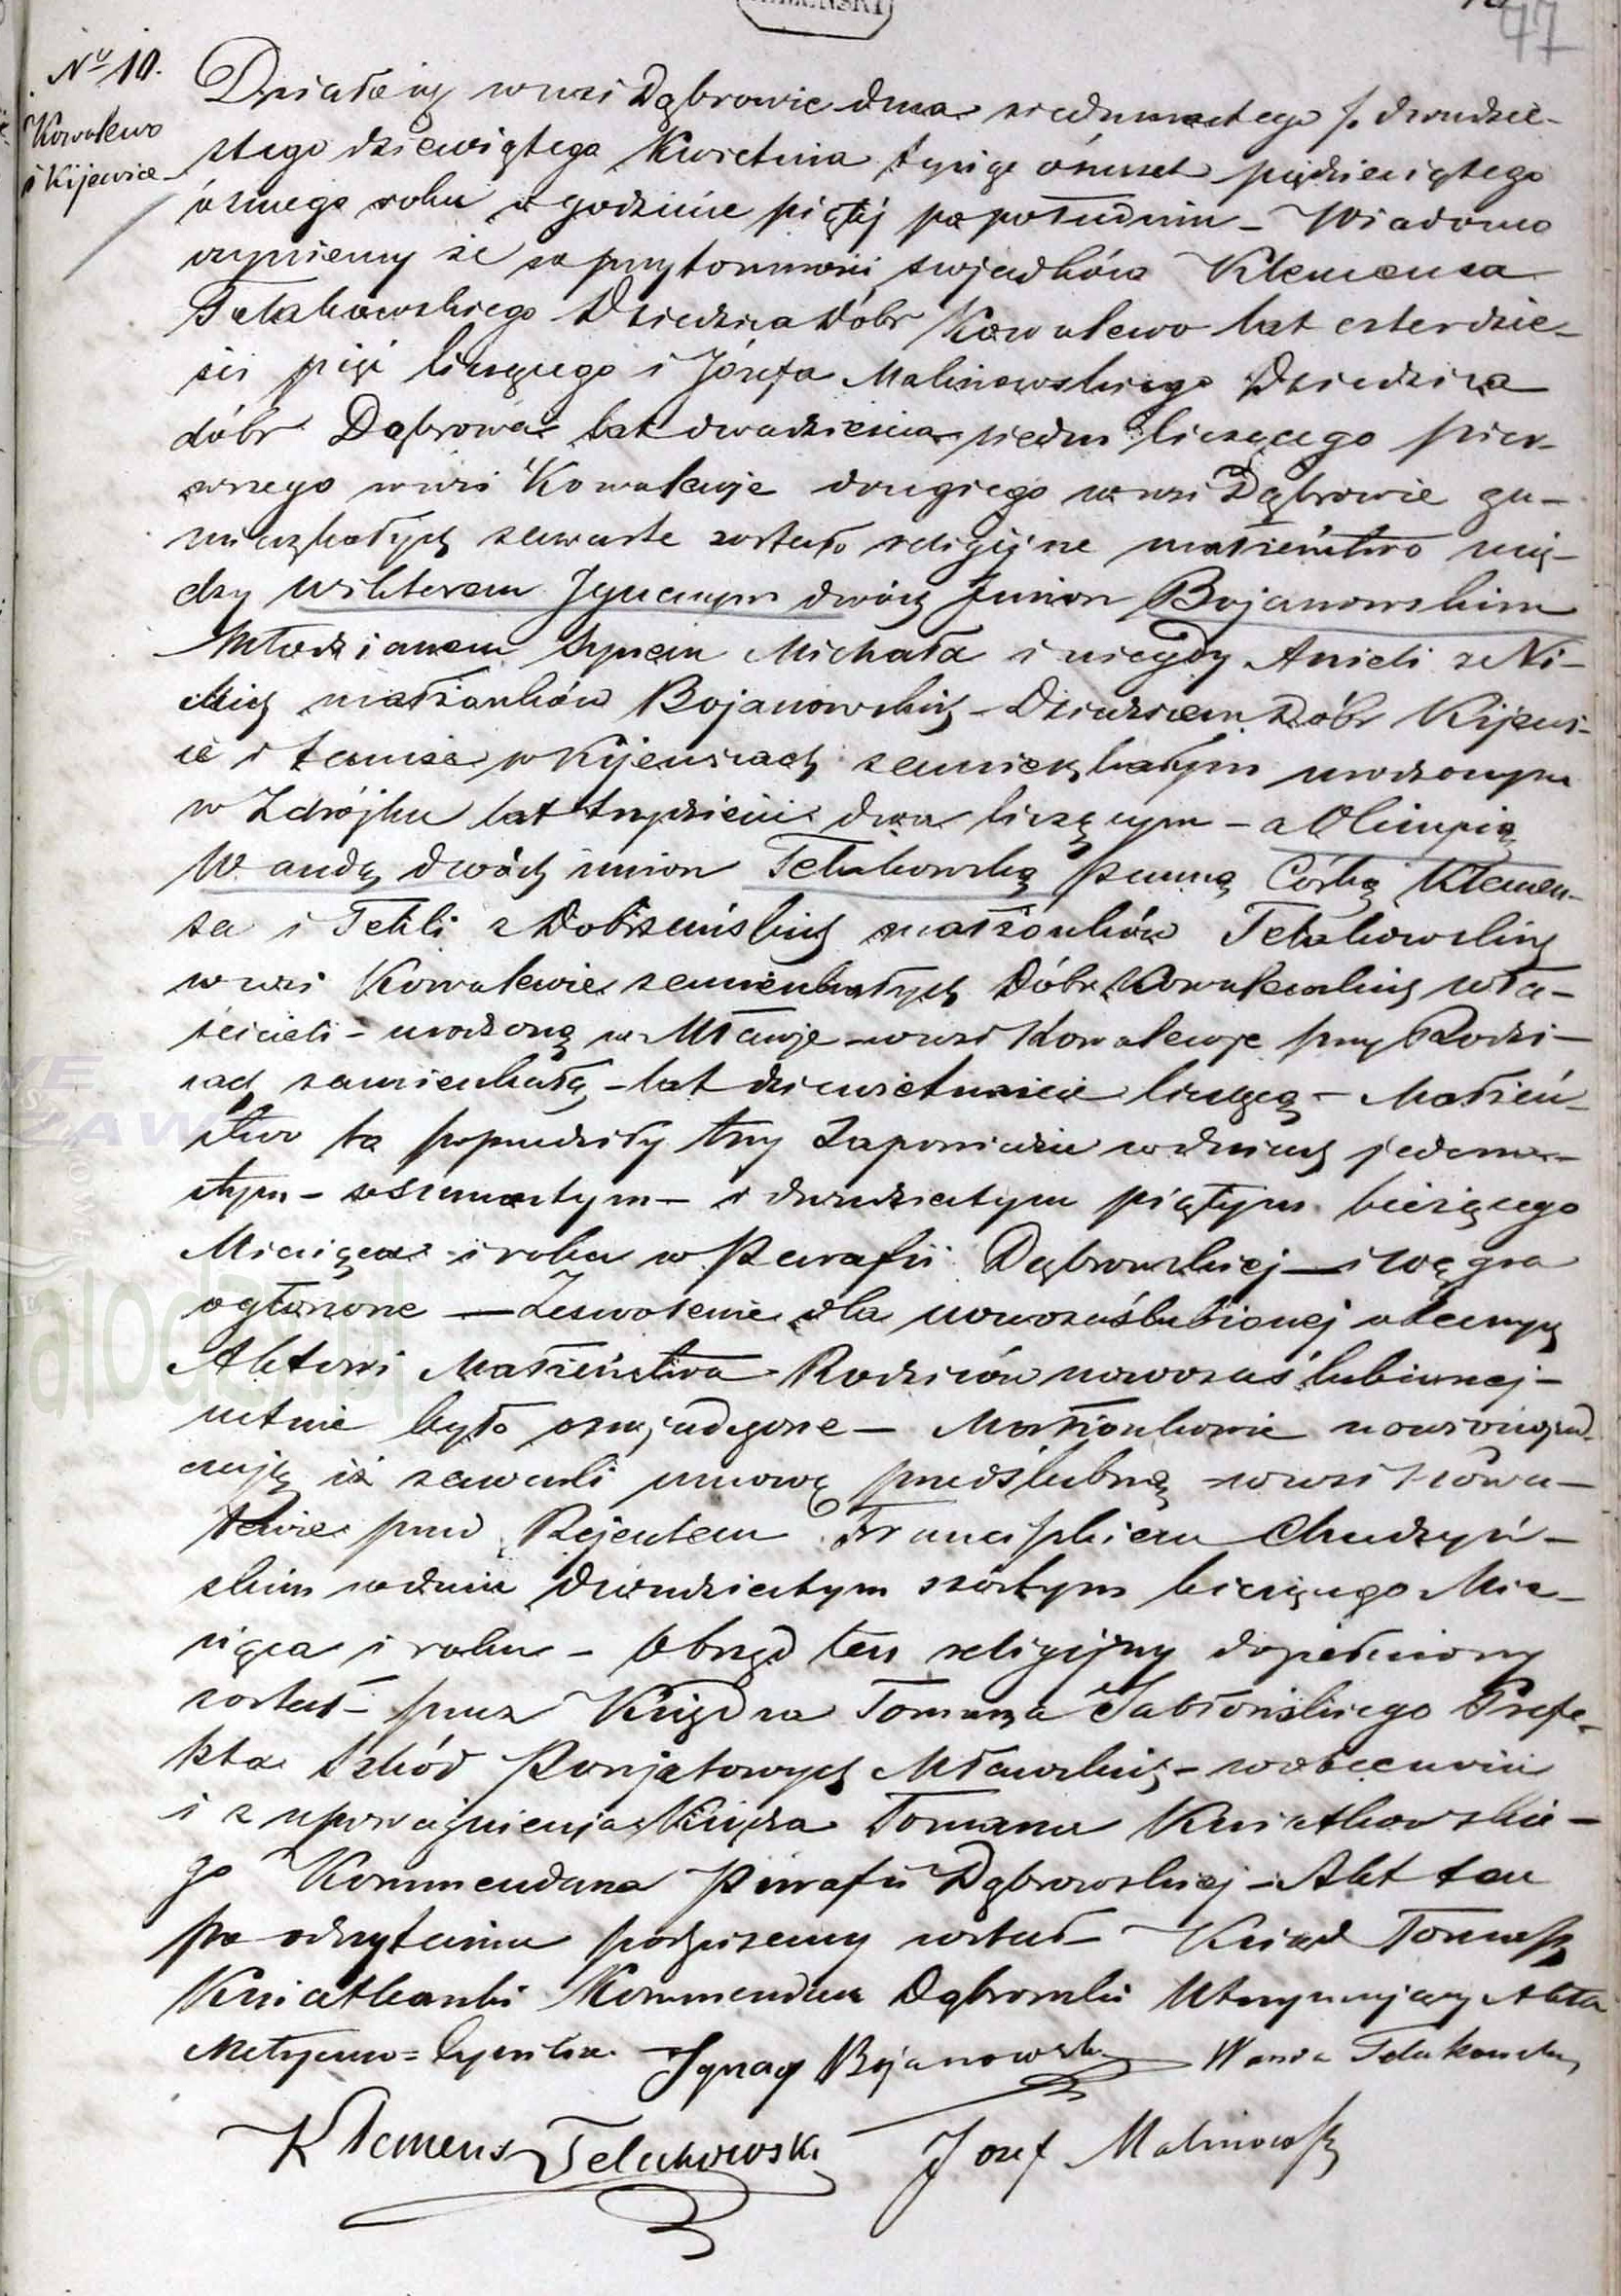 47
No 10.
Kowalewo
i Kijewice
Działo się we wsi Dąbrowie dnia siedmnastego /: dwudzie-
stego dziewiątego Kwietnia tysiąc óśmset pięćdziesiątego
ósmego roku o godzinie piątéj popołudniu – Wiadomo
czyniemy że w przytomności swjadków Klemensa
Telakowskiego Dziedzica Dóbr Kowalewo lat czterdzie-
ści pięć liczącego i Józefa Malinowskiego Dziedzica
dóbr Dąbrowa lat dwadzieścia siedm liczącego pier-
wszego w wsi Kowalewje drugiego we wsi Dąbrowie za-
mieszkałych zawarte zostało religijne małżeństwo mię-
dzy Wiktorem Ignacym dwóch Imion Bojanowskim
Młodzianem synem Michała i niegdy Anieli z Ni-
skich małżonków Bojanowskich – Dziedzicem Dóbr Kijewi-
ce i tamże w Kijewicach zamieszkałym urodzonym
w Zdrójku lat trzydzieści dwa liczącym – a Olimpią
Wandą dwóch imion Telakowską Panną Córką Klemen-
sa i Tekli z Dobrzańskich małżonków Telakowskich
w wsi Kowalewie zamieszkałych Dóbr Kowalewskich wła-
ścicieli – urodzoną w Mławje w wsi Kowalewje przy Rodzi-
cach zamieszkałą – lat dziewietnaście liczącą – Małżeń-
stwo to poprzedziły trzy Zapowiedzie w dniach jedena-
stym – ośmnastym – i dwudziestym piątym bieżącego
Miesiąca i roku w Parafii Dąbrowskiej – i Węgra
ogłoszone – Zezwolenie dla nowozaślubionej obecnych
Aktowi Małżeństwa Rodziców nowozaślubionej –
ustnie było oświadczone – Małżonkowie nowi oświad-
czają iż zawarli umowę przedślubną w wsi Kowa-
lewie przed Rejentem Franciszkiem Chudzyń-
skim w dniu dwudziestym szóstym bieżącego Mie-
siąca i roku – Obrząd ten religijny dopełniony
został – przez Księdza Tomasza Jabłońskiego Prefe-
kta Szkół Powjatowych Mławskich – w obecności
i z upoważnienia Księdza Tomasza Kwiatkowskie-
go Kommendarza Parafii Dąbrowskiej – Akt ten
po odczytaniu podpisany został – Ksiądz Tomasz
Kwiatkowski Kommendarz Dąbrowski Utrzymujący Akta
Metryczno = Cywilne. Ignacy Bojanowski Wanda Telakowska
Klemens Telakowski Jozef Malinowski